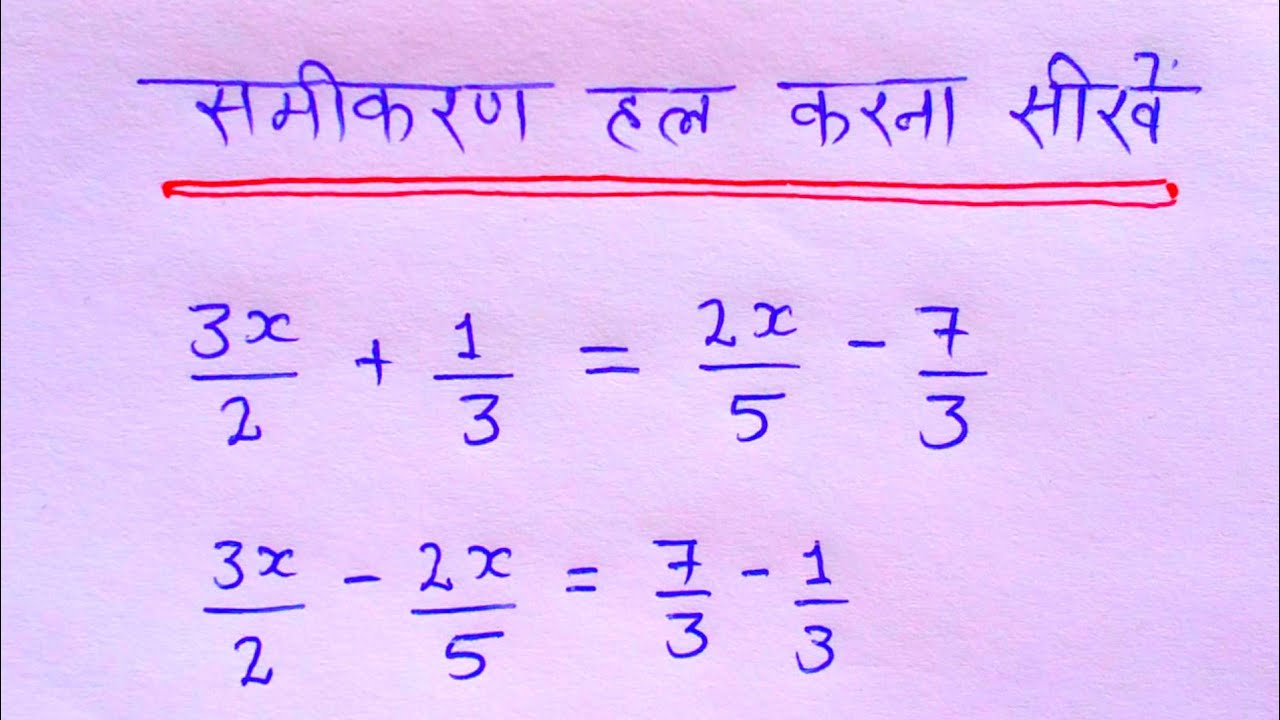 समीकरण हल करना सीखें
3x/2 + 1/3 = 2x/5 - 7/3
3x/2 - 2x/5 = 7/3 - 1/3